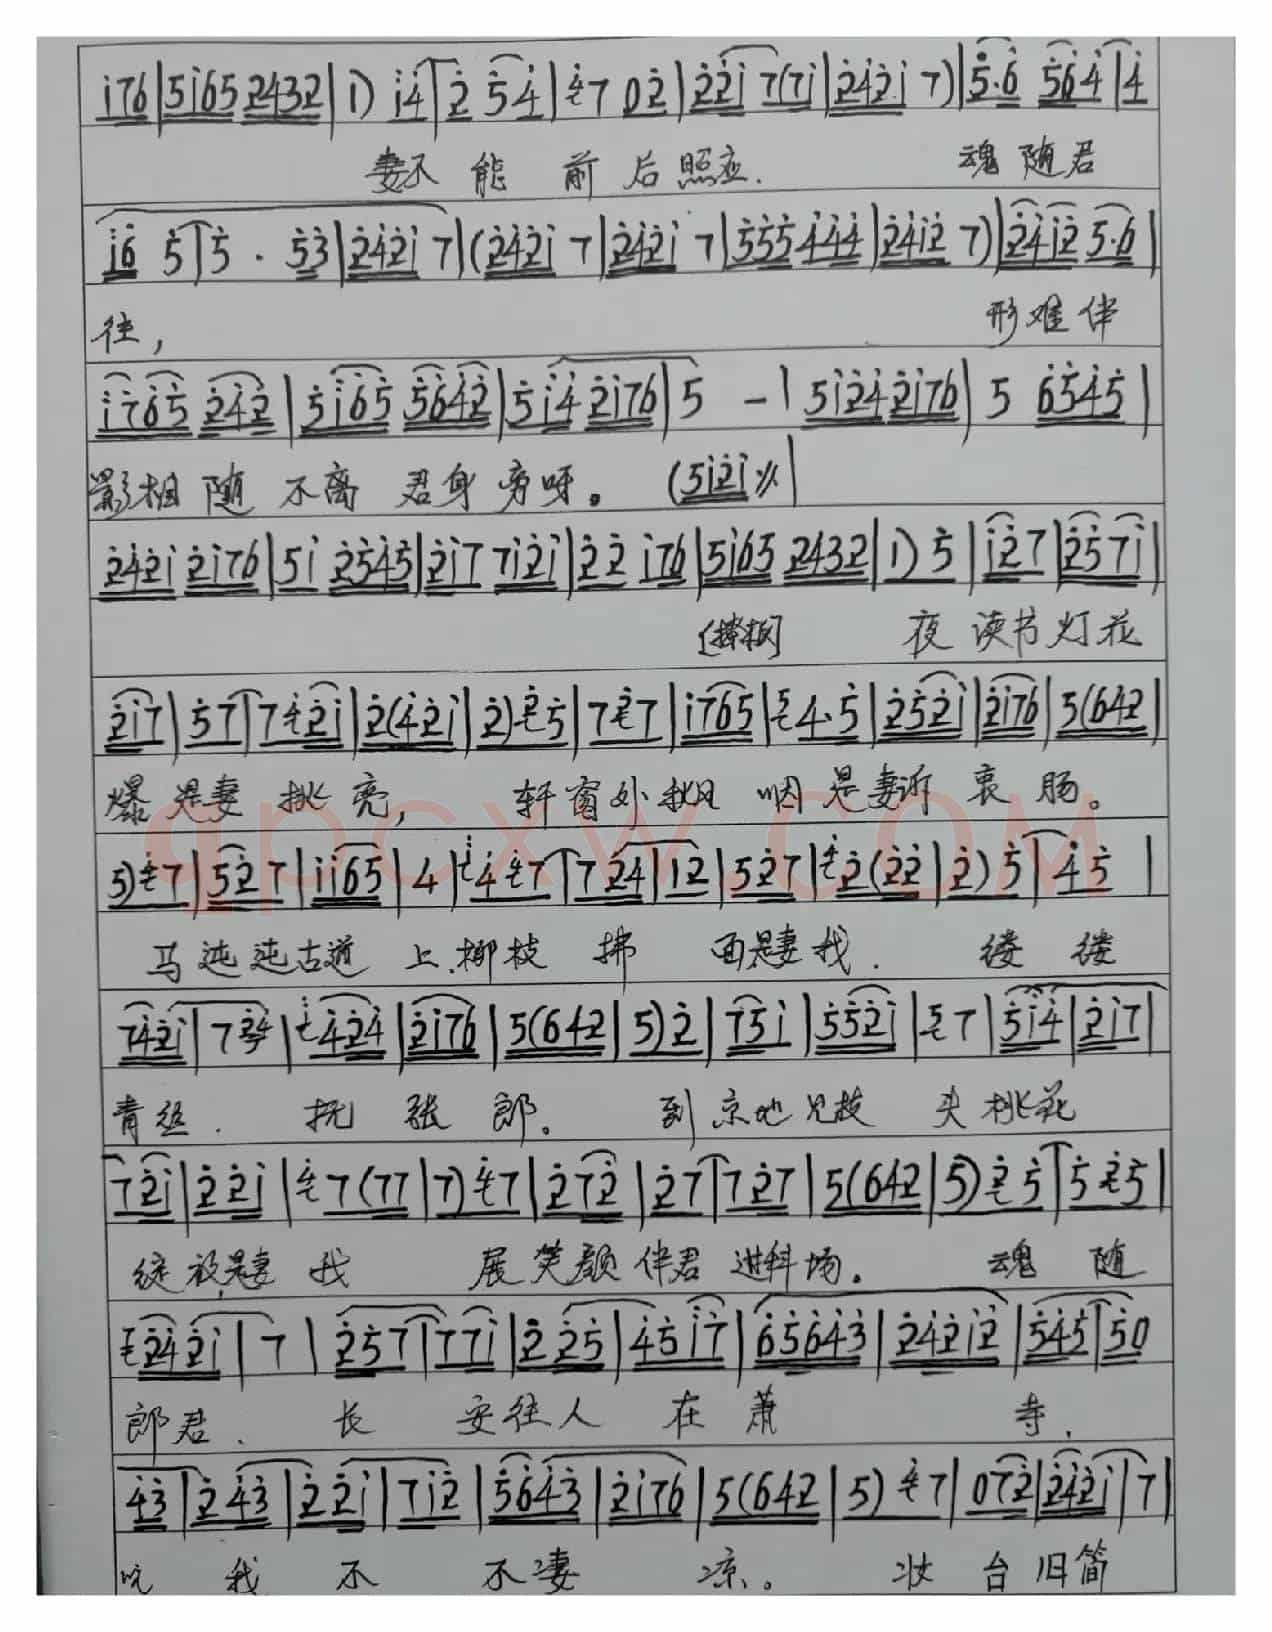 i76|5i65 2432|1) i4|2 54|47 02|22i 7(7i|242i 7)|5·6 564|4
妻不 能 前 后 照应. 魂 随 君
i6 5|5 · 53|242i 7|(242i 7|242i 7|555 444|24i2 7)|24i2 5·6|
往, 形 难 伴
i765 242|5i65 5642|5i4 2i76|5 -|5i24 2i76|5 6545|
影相 随 不离 君身 旁呀。 (5i2i
242i 2i76|5i 2545|2i7 7i2i|22 i76|5i65 2432|1) 5|i27|257i|
夜 读书 灯花
2i7|57|7 42i|2(42i|2) 25|7 27|i765|4·5|252i|2i76|5(642|
爆 是妻 挑 亮, 轩窗外 秋风 咽 是妻诉 衷 肠。
5) 47|527|ii65|4|4 47|724|12|527|2(22|2) 5|45|
马 古道 上.柳枝 拂 面是妻我. 缕 缕
742i|724|424|2i76|5(642|5)2|75i|552i|57|5i4|2i7|
青丝. 抚 张 郎。 到 京地 见枝 头 桃花
72i|22i|47(77|7) 47|272|27|727|5(642|5) 25|5 25|
绽放是妻 我 展 笑颜 伴君 进科场。 魂 随
242i|7|257|77i|2 25|45i7|65643|24212|545|50
郎君. 长 安往人 在 萧 寺.
43|2 43|2 2i|7i2|5643|2i76|5(642|5) 47|072|242i|7|
我 不 不凄 凉。 妆 台 旧简
qpcxw.com